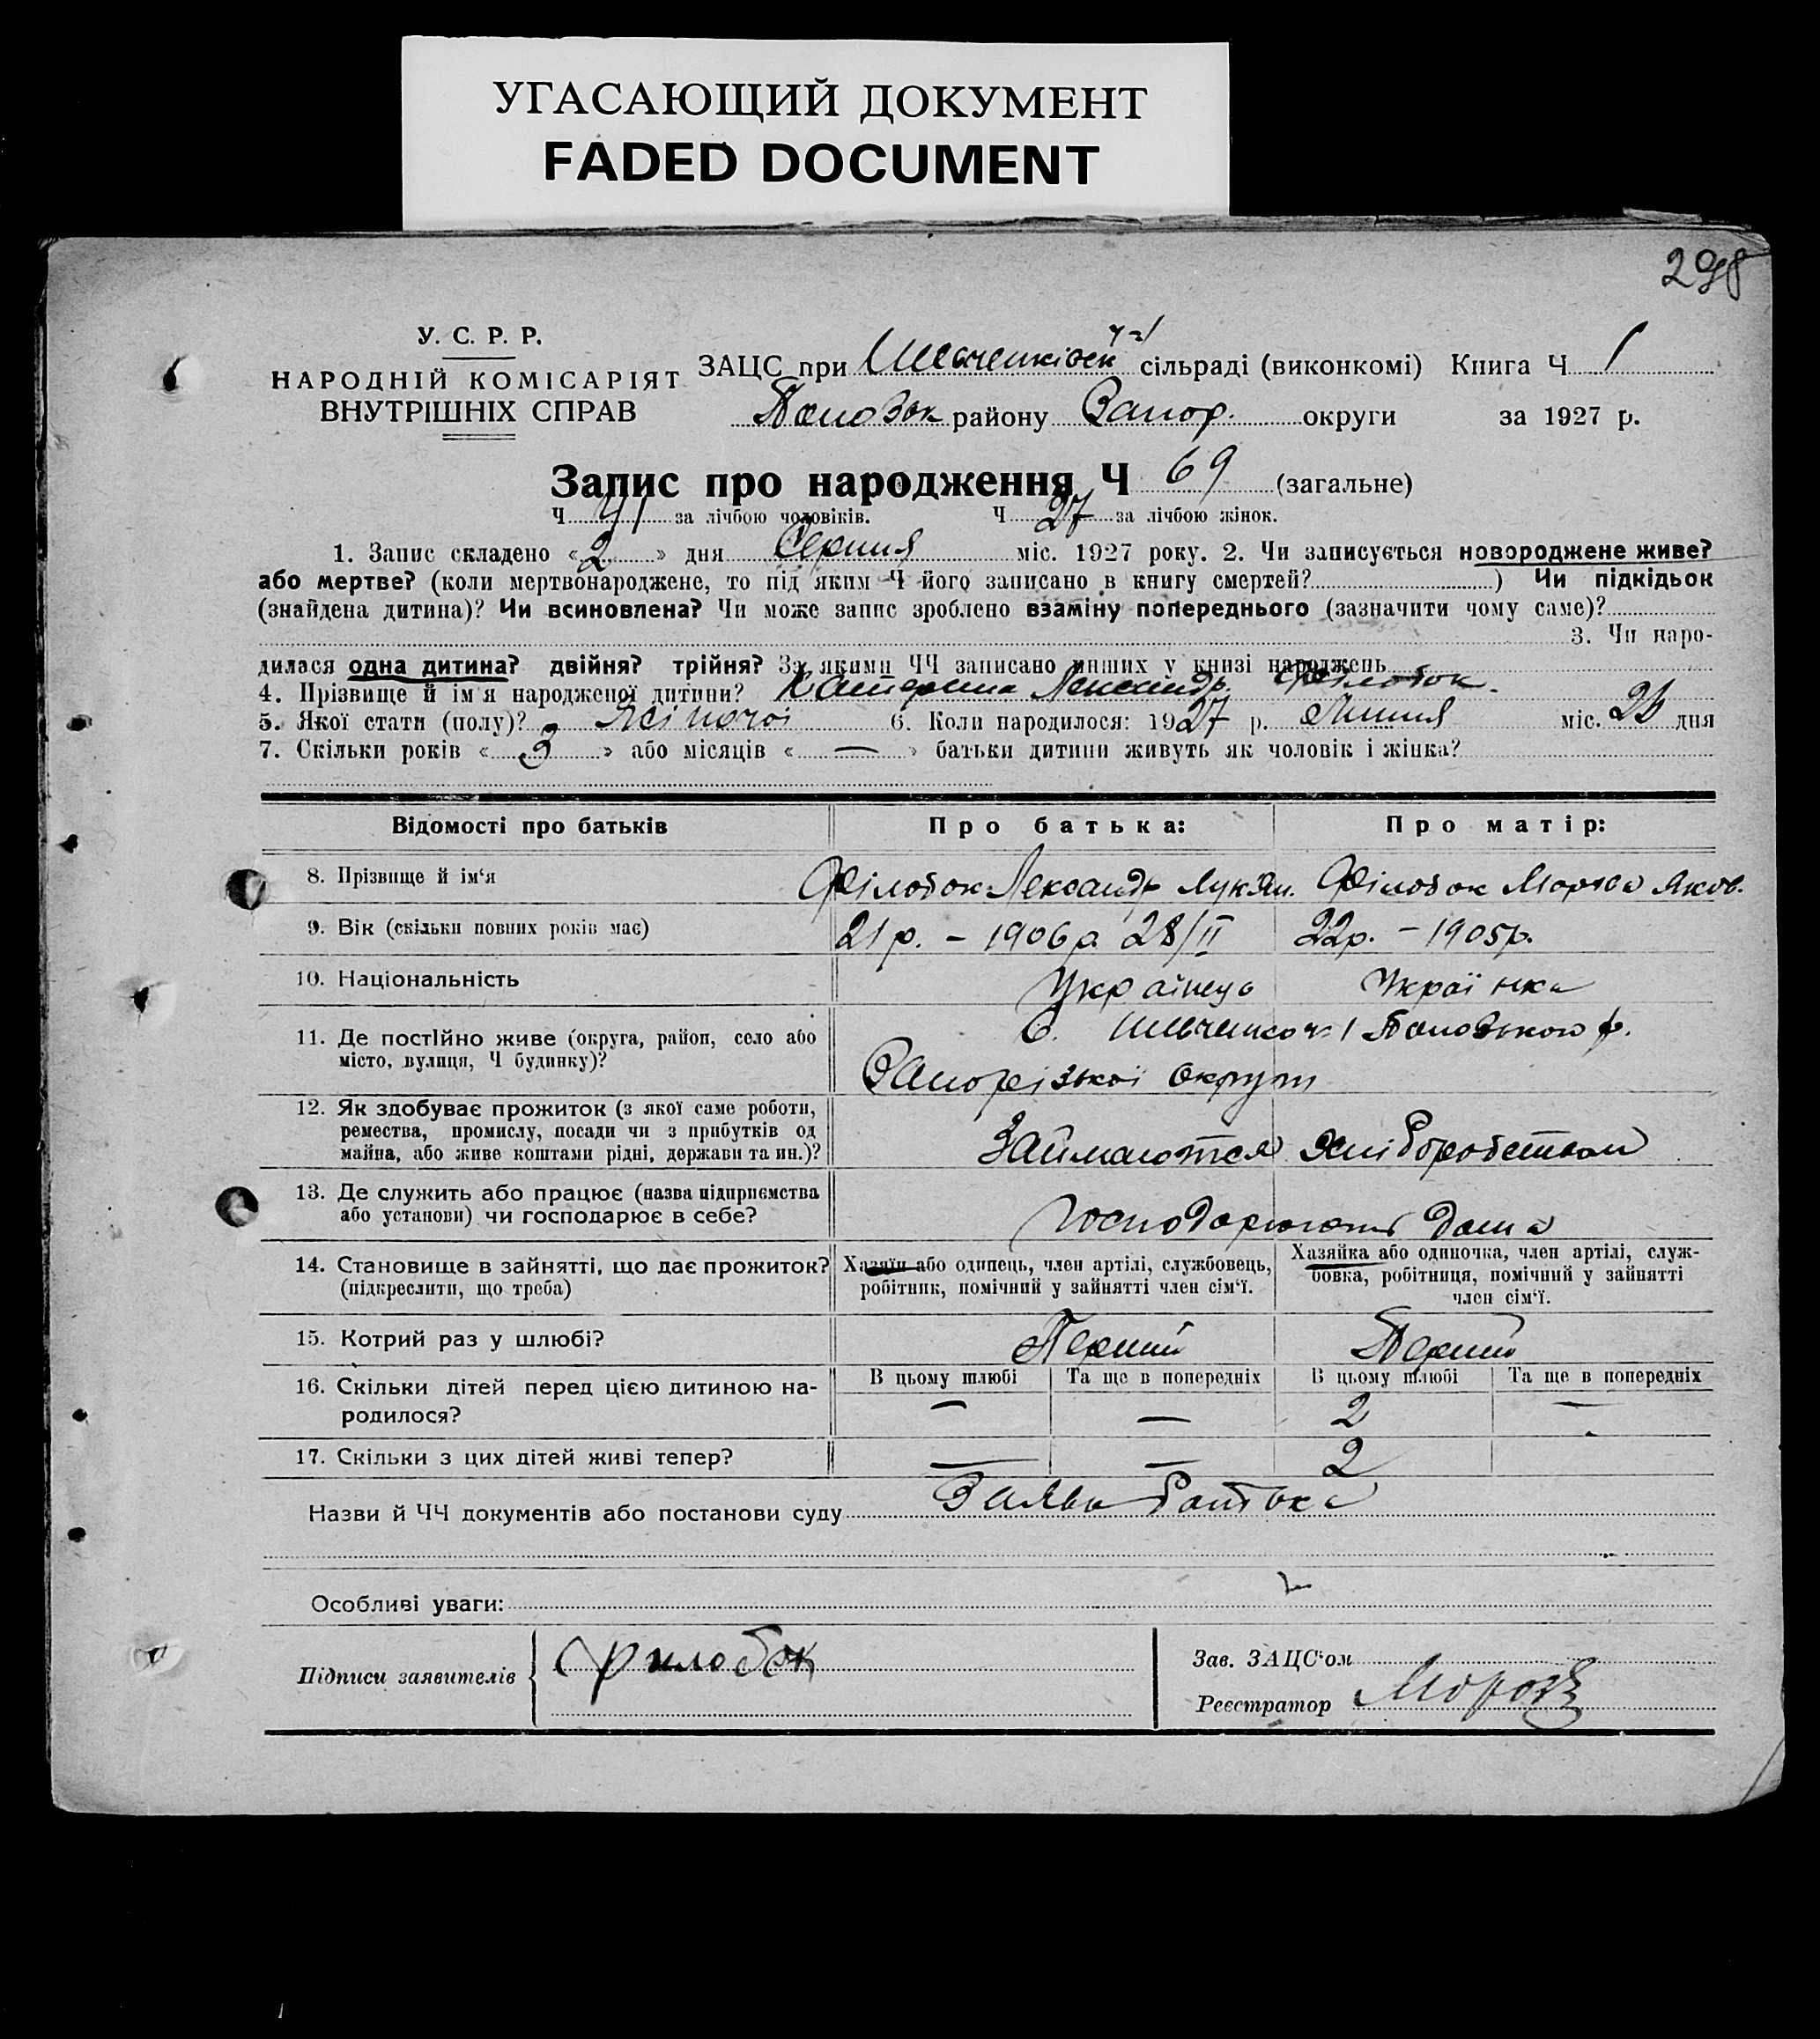 УГАСАЮЩИЙ ДОКУМЕНТ
FADED DOCUMENT
298
У. С. Р. Р.
НАРОДНІЙ КОМІСАРІЯТ
ВНУТРІШНІХ СПРАВ
ЗАЦС при Шевченківськ ч 1 сільраді (виконкомі) Книга Ч 1
району Запор. округи за 1927 р.
Запис про народження Ч 69 (загальне)
Ч 41 за лічбою чоловіків. Ч 27 за лічбою жінок.
1. Запис складено « 2 » дня Серпня міс. 1927 року. 2. Чи записується новороджене живе?
або мертве? (коли мертвонароджене, то під яким Ч його записано в книгу смертей? ) Чи підкідьок
(знайдена дитина)? Чи всиновлена? Чи може запис зроблено взаміну попереднього (зазначити чому саме)?
3. Чи наро-
дилася одна дитина? двійня? трійня? За якими ЧЧ записано инших у книзі народжень
4. Прізвище й ім'я народженої дитини? Катерина Лександр. Філобок.
5. Якої стати (полу)? Жіночої 6. Коли народилося: 1927 р. Липня міс. дня
7. Скільки років « 3 » або місяців « — » батьки дитини живуть як чоловік і жінка?
Відомості про батьків Про батька: Про матір:
8. Прізвище й ім'я Філобок Лександр Лукян. Філобок Яков.
9. Вік (скільки повних років має) 21 р. – 1906 р. 28/II 22 р. – 1905 р.
10. Національність Українець Українка
11. Де постійно живе (округа, район, село або
місто, вулиця, Ч будинку)? С. Шевченко ч. 1 р.
Запорізької округи
12. Як здобуває прожиток (з якої саме роботи,
ремества, промислу, посади чи з прибутків од
майна, або живе коштами рідні, держави та ин.)? Займаются хліборобством
13. Де служить або працює (назва підприємства
або установи) чи господарює в себе? Господарюют дома
14. Становище в зайнятті, що дає прожиток?
(підкреслити, що треба)
Хазяїн або одинець, член артілі, службовець,
робітник, помічний у зайнятті член сім'ї.
Хазяйка або одиночка, член артілі, служ-
бовка, робітниця, помічний у зайнятті
член сім'ї.
15. Котрий раз у шлюбі? Перший Перший
В цьому шлюбі Та ще в попередніх В цьому шлюбі Та ще в попередніх
16. Скільки дітей перед цією дитиною на-
родилося? — — 2 —
17. Скільки з цих дітей живі тепер? — — 2
Назви й ЧЧ документів або постанови суду Заява батька
Особливі уваги:
Підписи заявителів Филобок
Зав. ЗАЦС'ом
Реєстратор Мороз